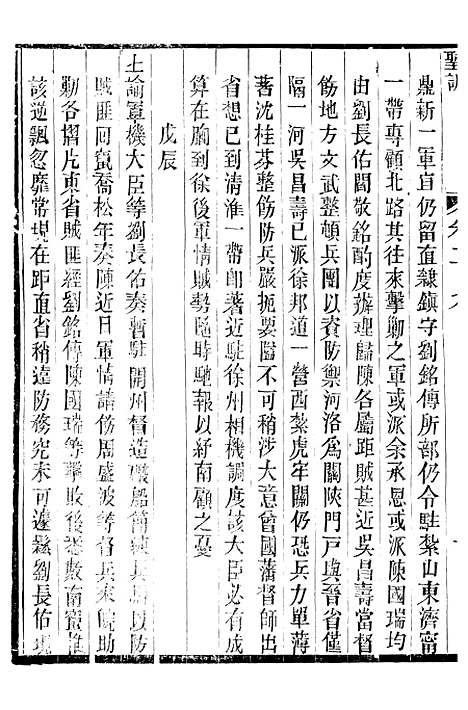 聖訓
鼎新一軍宜仍留直隸鎮字劉銘傳所部仍令駐紮山東濟甯
一帶專顧北路其往來擊勦之軍或派余承恩或派陳國瑞均
由劉長佑閻敬銘酌度辦理歸陳各屬距賊甚近吳昌壽當督
飭地方文武整頓兵團以資防禦河洛為關陝門戶與晉省僅
隔一河吳昌壽已派徐邦道一營西紮虎牢關仍恐兵力單薄
著沈桂芬整飭防兵嚴扼要隘不可稍涉大意曾國藩督師出
省想已到清淮一帶即著近駐徐州相機調度該大臣必有成
算在胸到徐後軍情賊勢隨時馳報以紓南顧之憂
戊辰
上諭軍機大臣等劉長佑奏暫駐開州督造礮船備練兵以防
賊匪回竄喬松年奏陳近日軍情請飭周盛波等督兵來皖助
勦各摺片東省賊匪經劉銘傳陳國瑞等擊敗後悉數南竄惟
該逆飄忽靡常現在距直省稍遠防務究未可遽鬆劉長佑現